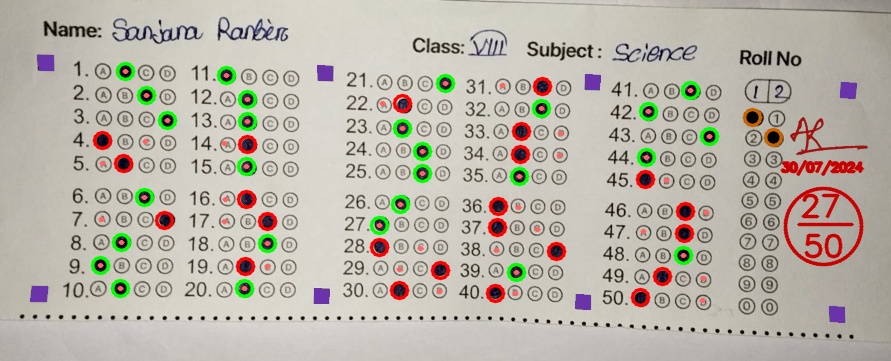 Name: Sanjana Ranbèro
Class: VIII Subject: Science
Roll No
1 2
1. A C D
2. A B D
3. A B C
4. B C D
5. A C D
6. A B D
7. A B C
8. A C D
9. B C D
10. A C D
11. B C D
12. A C D
13. A C D
14. A C D
15. A C D
16. A C D
17. A B D
18. A B D
19. A C D
20. A C D
21. A B C
22. A C D
23. A C D
24. A B D
25. A B D
26. A C D
27. B C D
28. B C D
29. A B C
30. A C D
31. A B D
32. A B D
33. A C D
34. A C D
35. A C D
36. B C D
37. B C D
38. A B C
39. A C D
40. B C D
41. A B D
42. B C D
43. A B C
44. B C D
45. B C D
46. A B D
47. A B D
48. A B D
49. A C D
50. B C D
1
2
3 3
4 4
5 5
6 6
7 7
8 8
9 9
0 0
30/07/2024
27
50